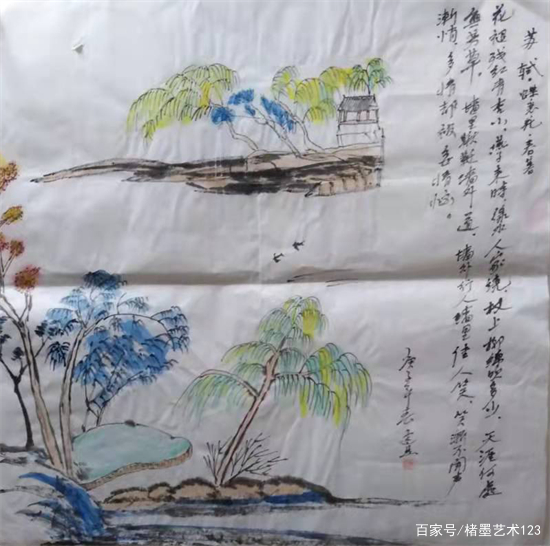 苏轼 蝶恋花 春
花褪残红青杏小。燕子 时,绿水人家绕。枝上柳绵吹 少。天涯何处
芳草。墙里 墙外道。墙外行人墙里佳人笑。笑渐不闻声
渐悄。多情却被无情恼。
庚子年春
百家号/楮墨艺术123